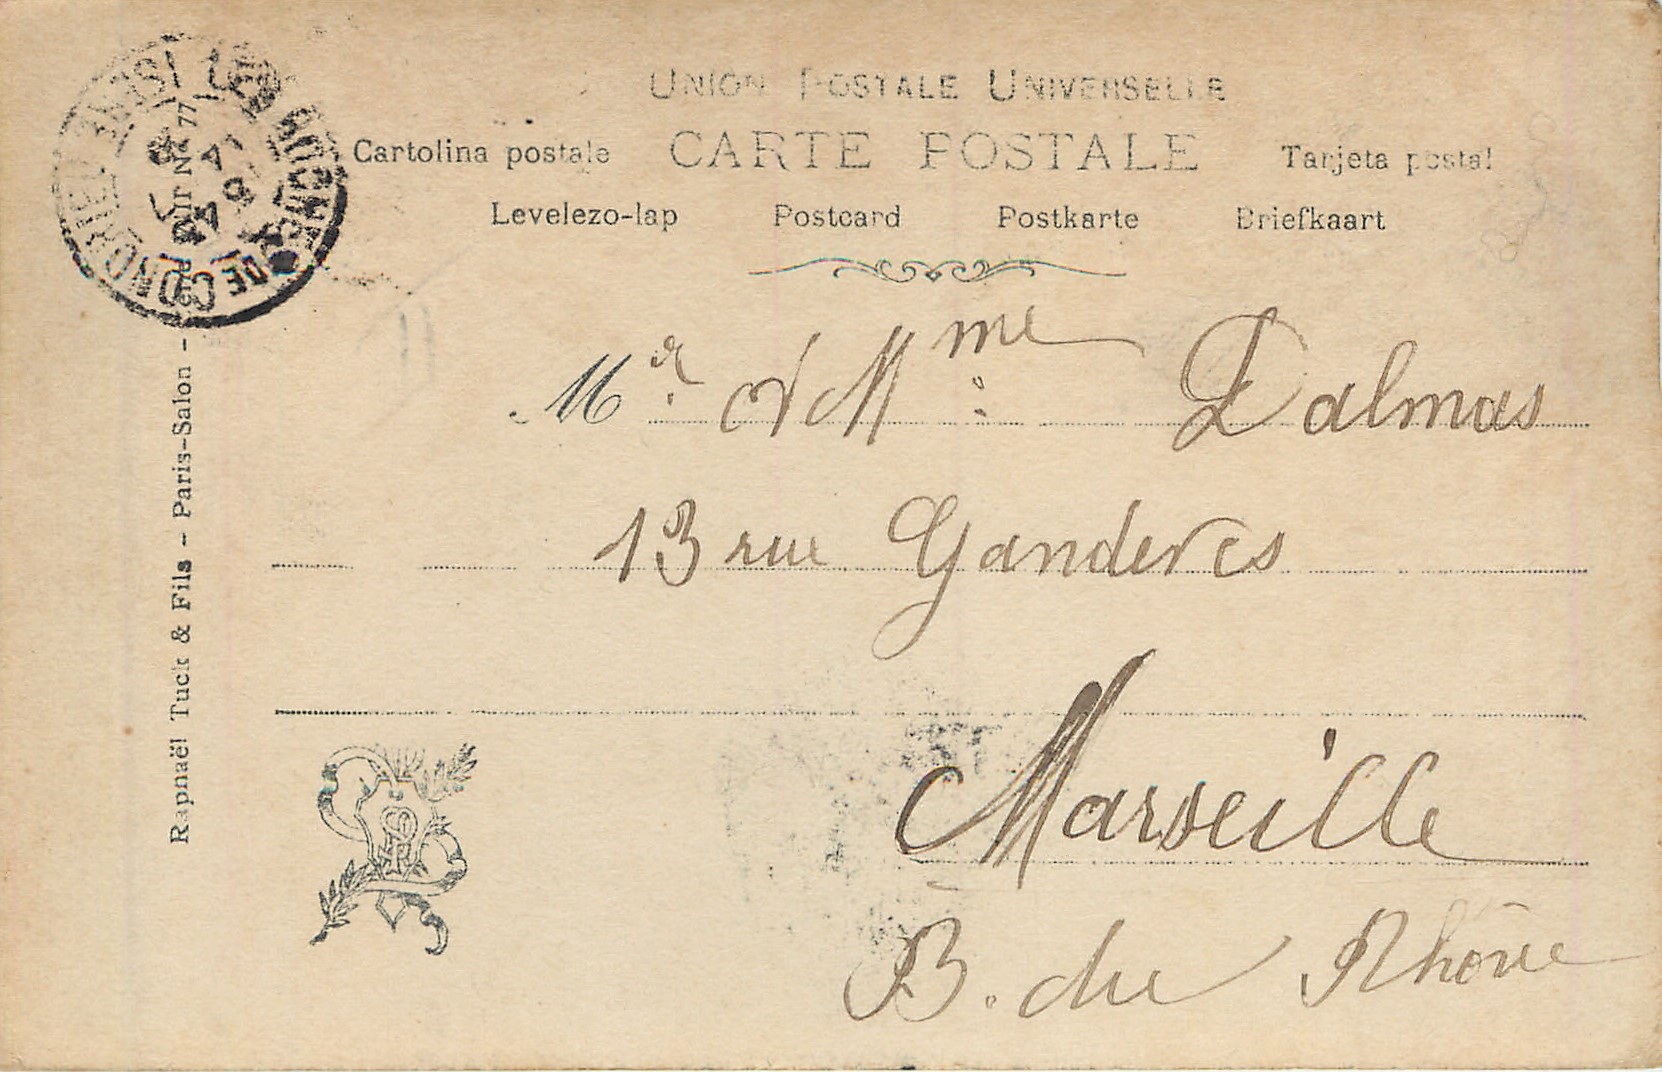 UNION POSTALE UNIVERSELLE
Cartolina postale CARTE POSTALE Tarjeta postal
Levelezo-lap Postcard Postkarte Briefkaart
Mr. et Mme. Dalmas
13 rue Ganderes
Marseille
B. du Rhône
Raphaël Tuck & Fils - Paris-Salon -
DE CONDRIEU